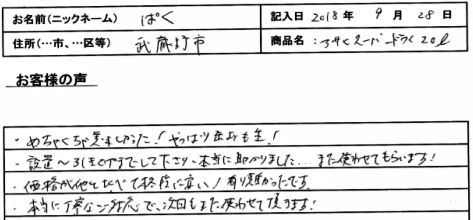 お名前(ニックネーム) ぱく 記入日 2018年 9月 28日
住所(…市、…区等) 武蔵野市 商品名:アサヒスーパードライ20ℓ
お客様の声
・めちゃくちゃ美味しかった!やっぱり生が一番!
・設置〜引き取りまでして下さり、本当に助かりました…また使わせてもらいます!
・価格が他とくらべて格段に安い!有り難かったです
・本当に丁寧なご対応で、次回もまた使わせて頂きます!